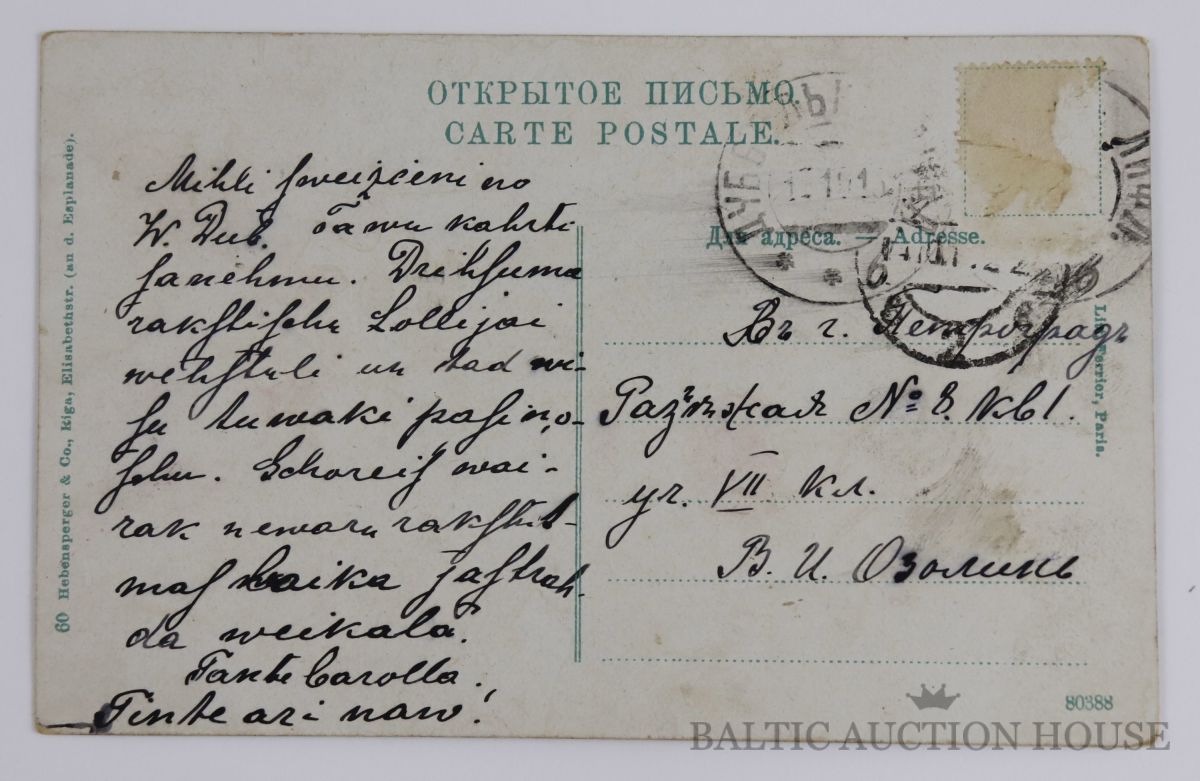 ОТКРЫТОЕ ПИСЬМО.
CARTE POSTALE.
Mihli sweizieni no
W. Dub. Tawu kahrti
sanehmu. Drihsuma
rakstischu Lollijai
wehstuli un tad wi-
su tuwaki pasino-
schu. Schoreis wai-
rak newaru rakstit
mas laika jastrah-
da weikala.
Tante Carolla.
Tinte ari naw!
Для адреса. — Adresse.
Въ г. Петроградъ
№ 8. кв 1.
уч. VII кл.
В. И. Озолинь
60 Hebensperger & Co., Riga, Elisabethstr. (an d. Esplanade).
Paris.
80388
BALTIC AUCTION HOUSE